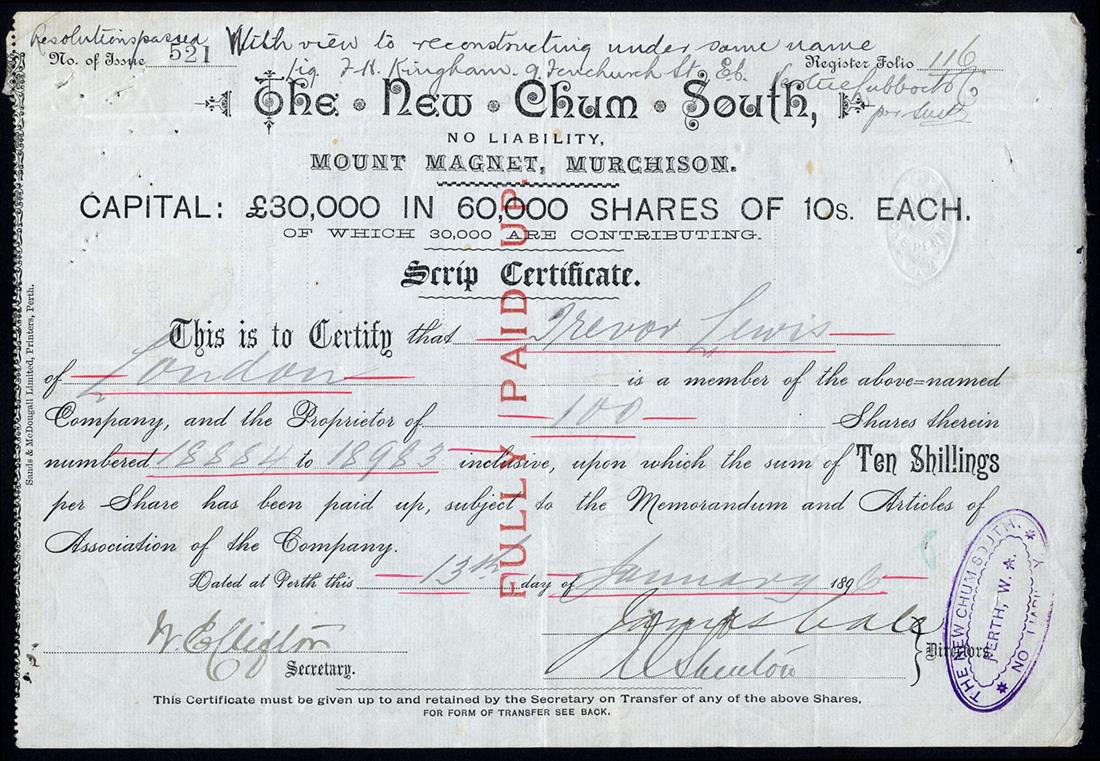 Resolutions passed With view to reconstructing under same name
No. of Issue 521 Register Folio 116
Liq. F. H. Kingham. 9 Fenchurch St. E.C.
per
The New Chum South,
NO LIABILITY,
MOUNT MAGNET, MURCHISON.
CAPITAL: £30,000 IN 60,000 SHARES OF 10s. EACH.
OF WHICH 30,000 ARE CONTRIBUTING.
Scrip Certificate.
FULLY PAID UP.
This is to Certify that Trevor Lewis
of London is a member of the above=named
Company, and the Proprietor of 100 Shares therein
numbered 18884 to 18983 inclusive, upon which the sum of Ten Shillings
per Share has been paid up, subject to the Memorandum and Articles of
Association of the Company.
Dated at Perth this 13th day of January 1896
W. E. Clifton
Secretary.
James Cale
Shenton
Directors.
THE NEW CHUM SOUTH.
NO LIABILITY
PERTH, W. A.
This Certificate must be given up to and retained by the Secretary on Transfer of any of the above Shares.
FOR FORM OF TRANSFER SEE BACK.
Sands & McDougall Limited, Printers, Perth.